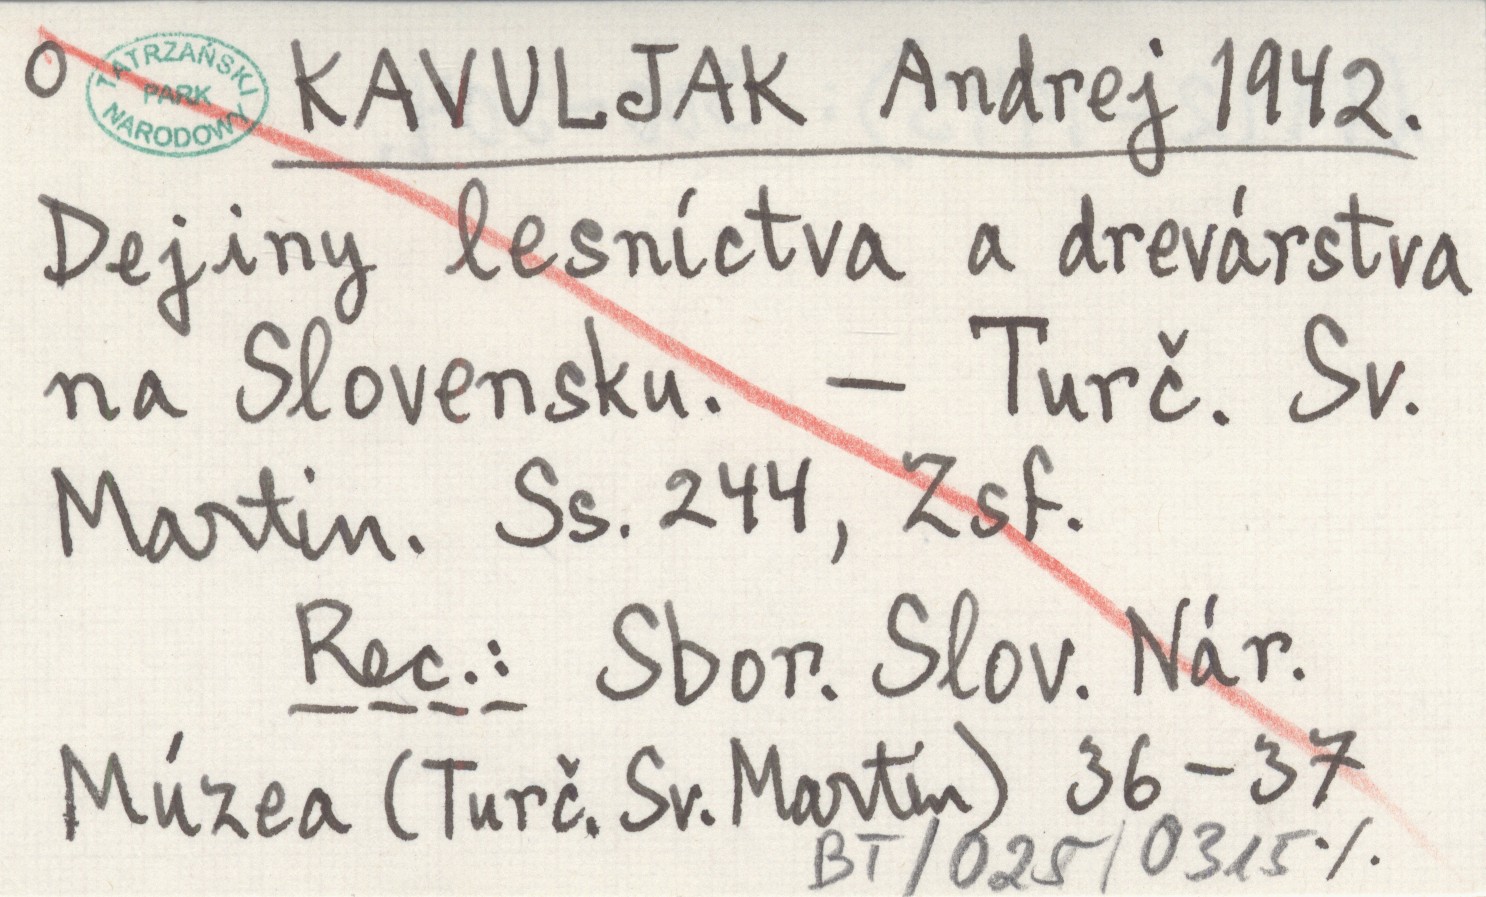 O TATRZAŃSKI PARK NARODOWY KAVULJAK Andrej 1942.
Dejiny lesníctva a drevárstva
na Slovensku. — Turč. Sv.
Martin. Ss. 244, Zsf.
Rec.: Sbor. Slov. Nár.
Múzea (Turč. Sv. Martin) 36–37
BT/025/0315 ·/.